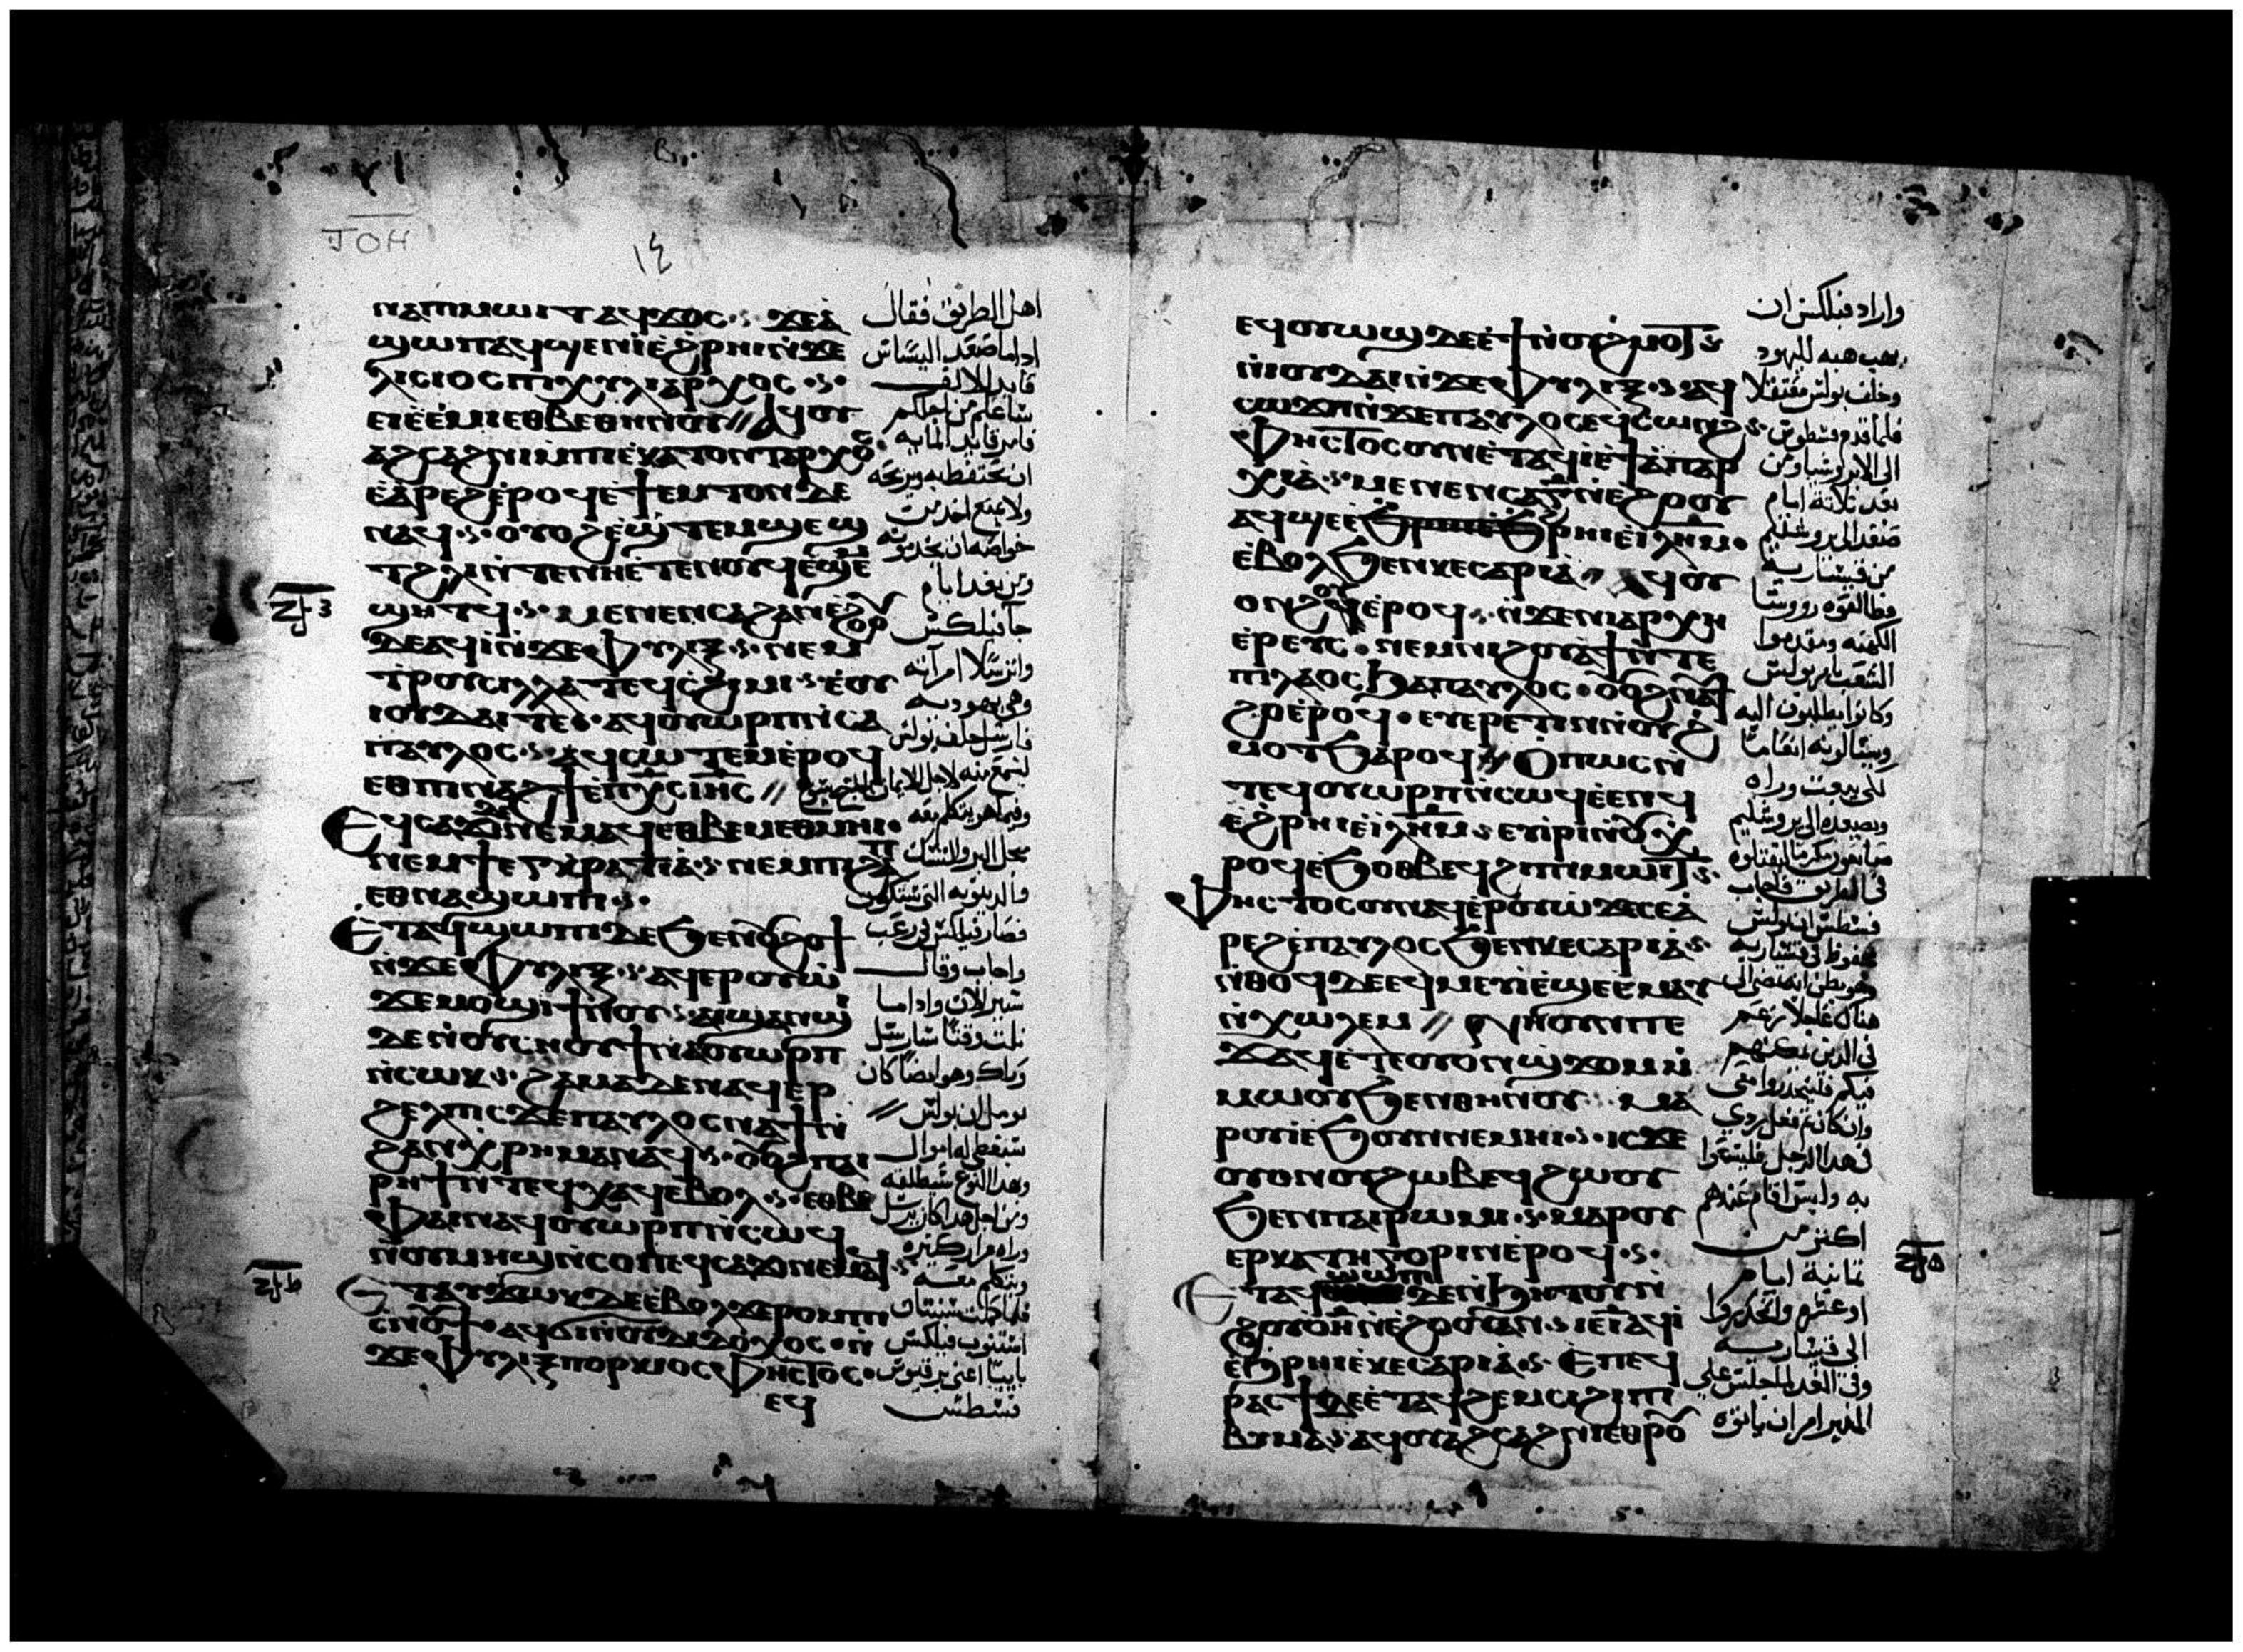 ⲛⲁⲡⲓⲙⲱⲓⲧ ⲁϥϫⲟⲥ ϫⲉⲁ̀
ϣⲱⲡ ⲁϥϣⲉⲛⲓ̀ ⲉ̀ϩⲣⲏⲓ ⲛ̀ϫⲉ
ⲗⲓⲥⲓⲟⲥ ⲡⲓⲭⲩⲗⲓⲁⲣⲭⲟⲥ
ⲉⲓⲉ̀ⲉ̀ⲙⲓ ⲉⲑⲃⲉⲑⲏⲛⲟⲩ // ⲁϥⲟⲩ
ⲁϩⲥⲁϩⲛⲓ ⲙ̀ⲡⲓⲉ̀ⲕⲁⲧⲟⲛⲧⲁⲣⲭⲟⲥ
ⲉ̀ⲁ̀ⲣⲉϩ ⲉ̀ⲣⲟϥ ⲉ̀ϯⲉⲙⲧⲟⲛ ⲇⲉ
ⲛⲁϥ ⲟⲩⲟϩ ⲉ̀ϣ̀ⲧⲉⲙϣⲉϣⲧ
ϩⲗⲓ ⲛ̀ⲧⲉⲛⲏ ⲉ̀ⲧⲉⲛⲟⲩϥ ⲉ̀ϣⲉ
ϣⲏⲧϥ ⲙⲉⲛⲉⲛⲥⲁ ϩⲁⲛⲉ̀ϩⲟⲟⲩ
ⲇⲉ ⲁϥⲓ̀ ⲛ̀ϫⲉ ⲫⲩⲗⲓⲝ ⲛⲉⲙ
ⲧⲣⲟⲩⲥⲓⲗⲗⲁ ⲧⲉϥⲥϩⲓⲙⲓ ⲉ̀ⲟⲩ
ⲓⲟⲩⲇⲁⲓ ⲧⲉ ⲁϥⲟⲩⲱⲣⲡ ⲛ̀ⲥⲁ
ⲡⲁⲩⲗⲟⲥ ⲁϥⲥⲱⲧⲉⲙ ⲉ̀ⲣⲟϥ
ⲉⲑⲃⲉ ⲡⲓⲛⲁϩϯ ⲉ̀ⲡⲭ̅ⲥ̅ ⲓⲏ̅ⲥ̅ //
Ⲉϥⲥⲁϫⲓ ⲛⲉⲙⲁϥ ⲉⲑⲃⲉ ⲙⲉⲑⲙⲏⲓ
ⲛⲉⲙ ϯⲉⲅⲕⲣⲁⲧⲓⲁ ⲛⲉⲙ ⲡⲓϩⲁⲡ
ⲉⲑⲛⲁϣⲱⲡⲓ
Ⲉ̀ⲧⲁϥϣⲱⲡⲓ ⲇⲉ ϧⲉⲛ ⲟⲩϩⲟϯ
ⲛ̀ϫⲉ ⲫⲩⲗⲓⲝ ⲁϥⲉⲣⲟⲩⲱ̀
ϫⲉ ⲙⲟϣⲓ ϯⲛⲟⲩ ⲁⲓϣⲁⲛϣⲓ
ⲇⲉ ⲛ̀ⲟⲩⲥⲏⲟⲩ ϯⲛⲁⲟⲩⲱⲣⲡ
ⲛ̀ⲥⲱⲕ ϩⲁⲙⲁ ⲇⲉ ⲛⲁϥⲉⲣ
ϩⲉⲗⲡⲓⲥ ϫⲉ ⲡⲁⲩⲗⲟⲥ ⲛⲁϯ ⲛ̀
ϩⲁⲛⲭⲣⲏⲙⲁ ⲛⲁϥ ⲟⲩⲟϩ ⲡⲁⲓ
ⲣⲏϯ ⲛ̀ⲧⲉϥⲭⲁϥ ⲉⲃⲟⲗ ⲉⲑⲃⲉ
ⲫⲁⲓ ⲛⲁϥⲟⲩⲱⲣⲡ ⲛ̀ⲥⲱϥ
ⲛ̀ⲟⲩⲙⲏϣ ⲛ̀ⲥⲟⲡ ⲉϥⲥⲁϫⲓ ⲛⲉⲙⲁϥ
Ⲉⲧⲁⲩϫⲱⲕ ⲇⲉ ⲉ̀ⲃⲟⲗ ϫⲉ ⲣⲟⲙⲡⲓ
ⲥⲛⲟⲩϯ ⲁϥϭⲓ ⲛ̀ⲟⲩⲇⲓⲁⲇⲟⲭⲟⲥ ⲛ̀
ϫⲉ ⲫⲩⲗⲓⲝ ⲡⲟⲣⲕⲓⲟⲥ ⲫⲏⲥⲧⲟⲥ
ⲉϥ
اهل الطريق فقال
اذا ما صعد ليسياس
قايد الالف
ساعلم من اجلكم
فامر قايد المايه
ان يحتفظ به ويريحه
ولا يمنع احد من
خواصه ان يخدمونه
ومن بعد ايام
جا فيلكس
وادرسلا امراته
وهي يهوديه
فارسل خلف بولس
ليسمع منه لاجل الايمان بالمسيح يسوع
وفيما هو يتكلم معه
مجل البر والنسك
والدينونه التي ستكون
فصار فيلكس في رعب
واجاب وقال
سير الان واذا ما
نلت وقتا سارسل
وراك وهو ايضا كان
يومل ان بولس
سيعطي له اموال
وبهذا النوع سيطلقه
ومن اجل هذا كان يرسل
وراه مرار كثيره
ويتكلم معه
فلما كملت سنتان
استنوب فيلكس
نايبا اعني بركيوس
فسطس
ⲉϥⲟⲩⲱϣ ⲇⲉ ⲉ̀ϯ ⲛ̀ⲟⲩϩⲙⲟⲧ
ⲛ̀ⲓⲟⲩⲇⲁⲓ ⲛ̀ϫⲉ ⲫⲩⲗⲓⲝ ⲁϥ
ⲥⲱϫⲡ ⲛ̀ϫⲉ ⲡⲁⲩⲗⲟⲥ ⲉϥⲥⲱⲛϩ
ⲫⲏⲥⲧⲟⲥ ⲟⲩⲛ ⲉ̀ⲧⲁϥⲓ̀ ⲉ̀ϯⲁ̀ⲡⲁⲣ
ⲭⲓⲁ̀ ⲙⲉⲛⲉⲛⲥⲁ ⲅ̅ ⲛ̀ⲉϩⲟⲟⲩ
ⲁϥϣⲉ ⲉ̀ϩⲣⲏⲓ ⲉ̀ⲓⲗⲏ̅ⲙ̅
ⲉ̀ⲃⲟⲗ ϧⲉⲛ ⲕⲉⲥⲁⲣⲓⲁ̀ // ⲁϥⲟⲩ
ⲟⲛϩⲟⲩ ⲉ̀ⲣⲟϥ ⲛ̀ϫⲉ ⲛⲓⲁⲣⲭⲏ
ⲉ̀ⲣⲉⲩⲥ ⲛⲉⲙ ⲛⲓϩⲟⲩⲁϯ ⲛ̀ⲧⲉ
ⲡⲓⲗⲁⲟⲥ ϧⲁ ⲡⲁⲩⲗⲟⲥ ⲟⲩⲟϩ ⲛⲁⲩϯ
ϩⲟ ⲉ̀ⲣⲟϥ ⲉⲩⲉⲣⲉⲧⲓⲛ ⲛ̀ⲟⲩϩ
ⲙⲟⲧ ϧⲁⲣⲟϥ // Ⲟⲡⲱⲥ ⲛ̀
ⲧⲉϥⲟⲩⲱⲣⲡ ⲛ̀ⲥⲱϥ ⲉ̀ⲉⲛϥ
ⲉ̀ϩⲣⲏⲓ ⲉ̀ⲓⲗⲏ̅ⲙ̅ ⲉⲩⲓ̀ⲣⲓ ⲛ̀ⲟⲩⲭ
ⲣⲟϥ ⲉ̀ϧⲟⲑⲃⲉϥ ϩⲓ ⲡⲓⲙⲱⲓⲧ
Ⲫⲏⲥⲧⲟⲥ ⲟⲩⲛ ⲁϥⲉ̀ⲣⲟⲩⲱ̀ ϫⲉ ⲥⲉⲁ̀
ⲣⲉϩ ⲉ̀ⲡⲁⲩⲗⲟⲥ ϧⲉⲛ ⲕⲉⲥⲁⲣⲓⲁ̀
ⲛ̀ⲑⲟϥ ⲇⲉ ⲉϥⲙⲉⲩⲓ̀ ⲉ̀ϣⲉ ⲉ̀ⲙⲁⲩ
ⲛ̀ⲭⲱⲗⲉⲙ // ⲛⲏ ⲟⲩⲛ ⲡⲉ
ϫⲁϥ ⲉ̀ⲧⲉ ⲟⲩⲟⲛ ϣ̀ϫⲟⲙ ⲙ̀
ⲙⲱⲟⲩ ϧⲉⲛ ⲑⲏⲛⲟⲩ ⲙⲁ
ⲣⲟⲩⲓ̀ ⲉ̀ϧⲟⲩⲛ ⲛⲉⲙⲏⲓ ⲓⲥϫⲉ
ⲟⲩⲟⲛ ⲟⲩϩⲱⲃ ⲉϥϩⲱⲟⲩ
ϧⲉⲛ ⲡⲁⲓⲣⲱⲙⲓ ⲙⲁⲣⲟⲩ
ⲉⲣⲕⲁⲧⲏⲅⲟⲣⲓⲛ ⲉ̀ⲣⲟϥ
Ⲉⲧⲁϥϣⲱⲡⲓ ⲇⲉ ⲛ̀ϧⲏⲧⲟⲩ ⲛ̀
ϩⲟⲩⲟ̀ ⲏ̅ ⲛ̀ⲉϩⲟⲟⲩ ⲁⲛ ⲓⲉ ⲓ̅ ⲁϥⲓ̀
ⲉ̀ϧⲣⲏⲓ ⲉ̀ⲕⲉⲥⲁⲣⲓⲁ̀ Ⲉⲡⲉϥ
ⲣⲁⲥϯ ⲇⲉ ⲉ̀ⲧⲁϥϩⲉⲙⲥⲓ ϩⲓ ⲡⲓ
ⲃⲩⲙⲁ ⲁϥⲟⲩⲁϩⲥⲁϩⲛⲓ ⲉⲑⲣⲟⲩ
واراد فيلكس ان
يهب هبه لليهود
وخلف بولس معتقلا
فلما قدم فسطوس
الى الابروشيا ومن
بعد ثلاثة ايام
صعد الى يروشليم
من قيساريه
فطالعوه رووسا
الكهنه ومتقدموا
الشعب بامر بولس
وكانوا يطلبون اليه
ويسالونه انعاما
لكي يبعت وراه
ويصعده الى يروشليم
صانعون مكرا ليقتلوه
في الطريق فاجاب
فسطس ان بولس
محفوظ في قيساريه
وهو يظن انه يمضي الى
هناك عاجلا
في الذين يمكنهم
فيكم فلينحدروا معي
وان كان ثم فعل ردي
في هذا الرجل فليسعوا
به وليس اقام عندهم
اكثر من
ثمانية ايام
او عشره وانحدر
الى قيساريه
وفي الغد لما جلس على
المنبر امر ان ياتوه
ⲒⲞⲎ
١٤